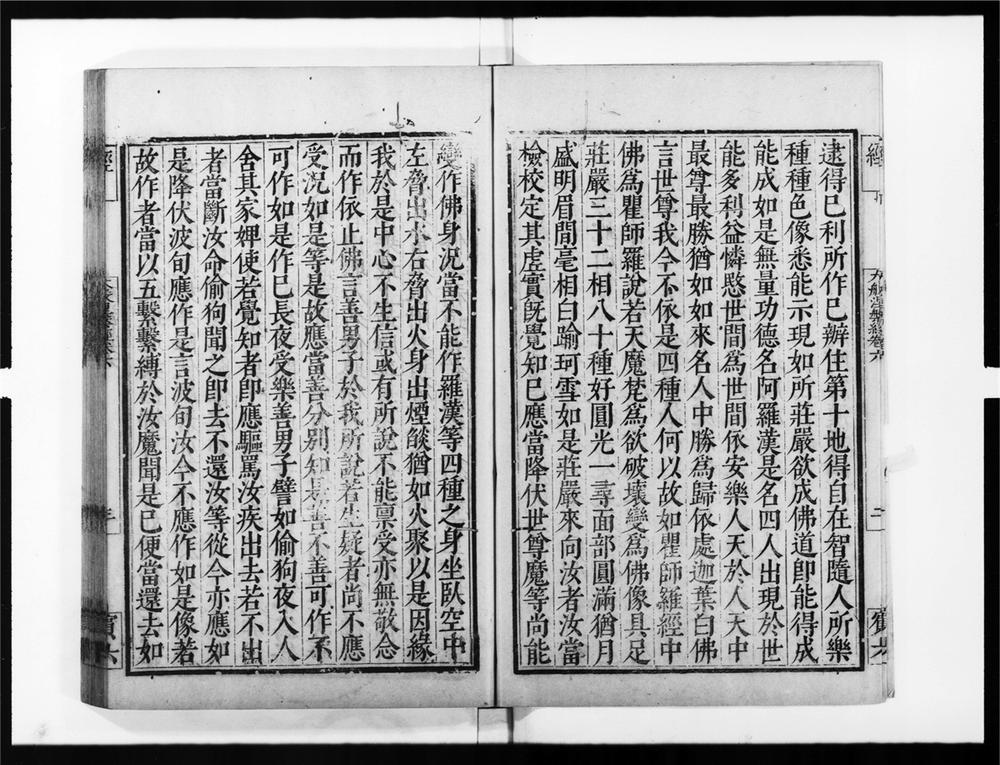 逮得己利所作已辦住第十地得自在智隨人所樂
種種色像悉能示現如所莊嚴欲成佛道即能得成
能成如是無量功德名阿羅漢是名四人出現於世
能多利益憐愍世間為世間依安樂人天於人天中
最尊最勝猶如如來名人中勝為歸依處迦葉白佛
言世尊我今不依是四種人何以故如瞿師羅經中
佛為瞿師羅說若天魔梵為欲破壞變為佛像具足
莊嚴三十二相八十種好圓光一尋面部圓滿猶月
盛明眉間毫相白踰珂雪如是莊嚴來向汝者汝當
檢校定其虛實既覺知已應當降伏世尊魔等尚能
變作佛身況當不能作羅漢等四種之身坐臥空中
左脅出水右脅出火身出煙燄猶如火聚以是因緣
我於是中心不生信或有所說不能稟受亦無敬念
而作依止佛言善男子於我所說若生疑者尚不應
受況如是等是故應當善分別知是善不善可作不
可作如是作已長夜受樂善男子譬如偷狗夜入人
舍其家婢使若覺知者即應驅罵汝疾出去若不出
者當斷汝命偷狗聞之即去不還汝等從今亦應如
是降伏波旬應作是言波旬汝今不應作如是像若
故作者當以五繫繫縛於汝魔聞是已便當還去如